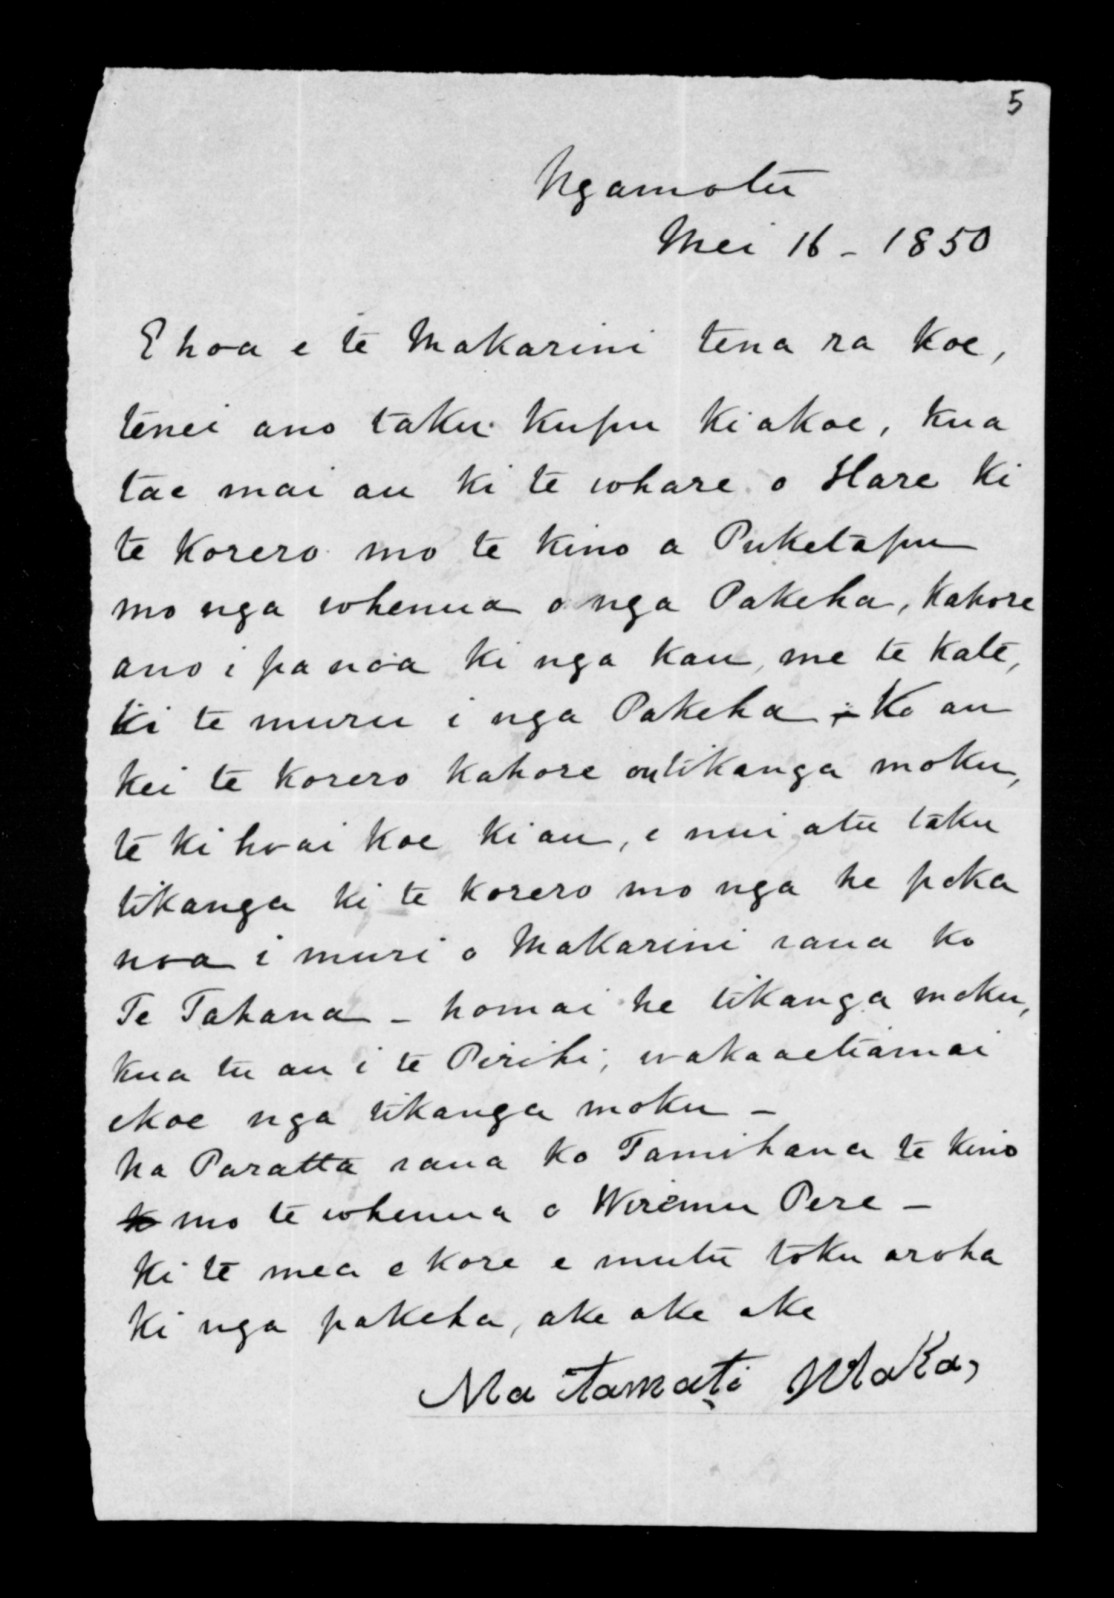 5
Ngamotu
Mei 16 - 1850
E hoa e te Makarini tena ra koe,
tenei ano taku kupu ki akoe, kua
tae mai au ki te whare o Hare ki
te korero mo te kino a Puketapu
mo nga whenua o nga Pakeha, kahore
ano i pa noa ki nga kau, me te kate,
ki te muru i nga Pakeha - Ko au
kei te korero kahore tikanga moku,
te ki hoai koe ki au, e nui atu taku
tikanga ki te korero mo nga he poka
noa i muri o Makarini raua ko
Te Tahana - homai he tikanga moku,
kua tu au i te Pirihi, wakaaetiamai
ekoe nga tikanga moku -
na Paratta raua ko Tamihana te kino
mo te whenua o Wiremu Pere -
Ki te mea e kore e mutu toku aroha
ki nga pakeha, ake ake ake
Na Tamati Waka,